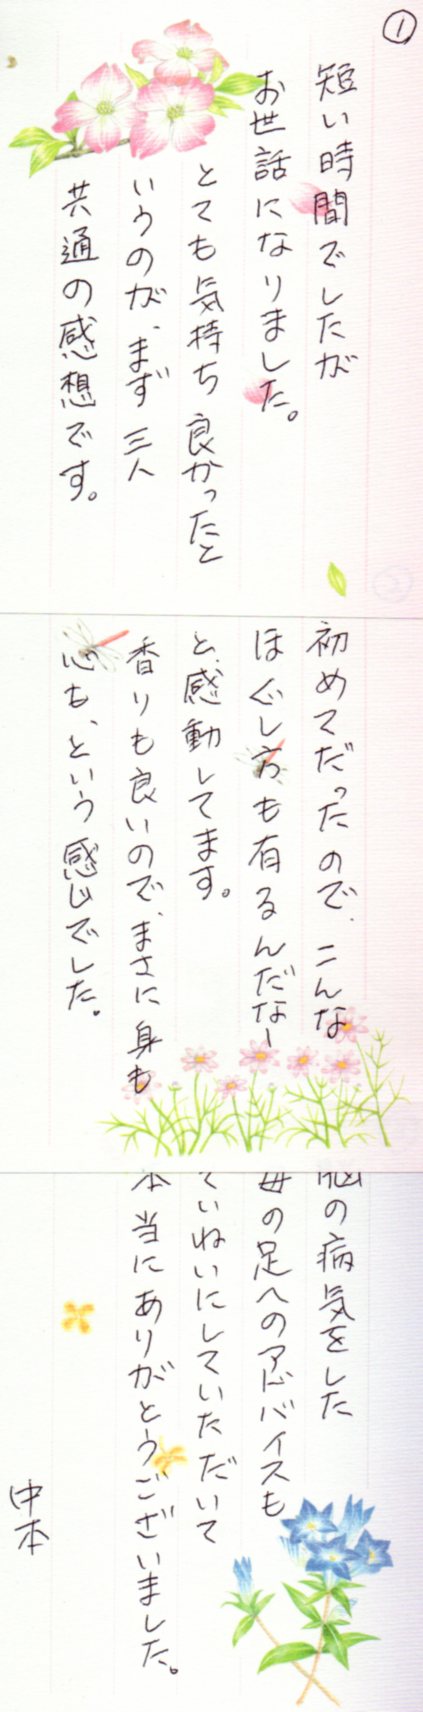 ①
短い時間でしたが
お世話になりました。
とても気持ち良かったと
いうのが、まず三人
共通の感想です。
初めてだったので、こんな
ほぐし方も有るんだなー
と、感動してます。
香りも良いので、まさに身も
心も、という感じでした。
脳の病気をした
母の足へのアドバイスも
ていねいにしていただいて
本当にありがとうございました。
中本